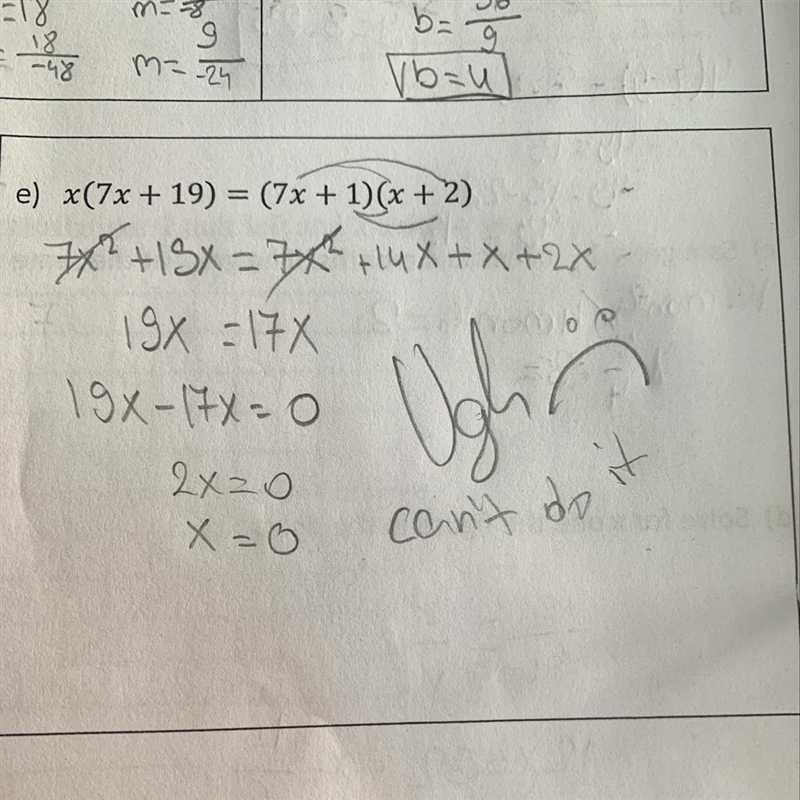 =18
m=
-8
18
-48
m= 9
-24
b=
9
b=4
e) x(7x + 19) = (7x + 1)(x + 2)
7x² +19x = 7x² +14x + x + 2x
19x = 17x
19x - 17x = 0
2x = 0
x = 0
Ugh
can't do it